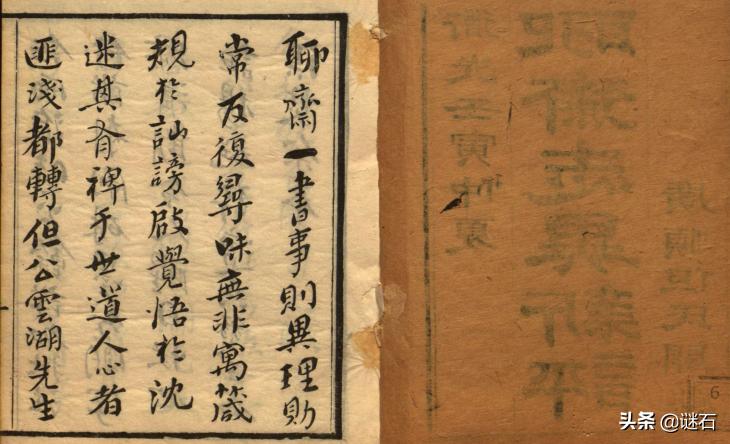 壬寅仲夏
聊齋一書事則異理則
常反復尋味無非寓箴
規於訕謗啟覺悟於沈
迷其有裨于世道人心者
匪淺都轉但公雲湖先生
6
头条 @谜石